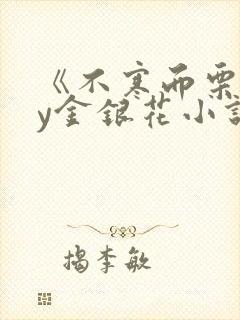 《不寒而栗
y金银花小说
揭李敏